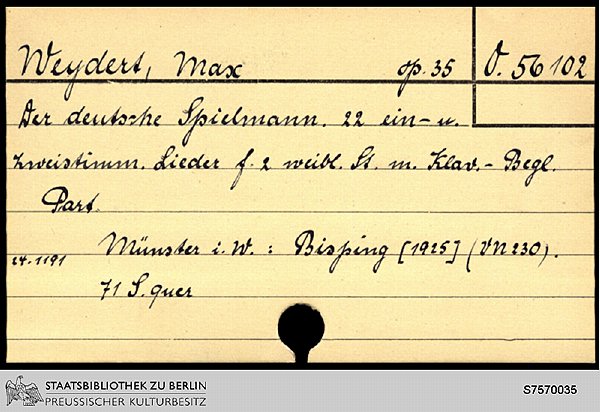 Weydert, Max op. 35 O. 56102
Der deutsche Spielmann. 22 ein- u.
zweistimm. Lieder f. 2 weibl. St. m. Klav.- Begl.
Part.
24.1191 Münster i. W. : Bisping [1925] (VN 230).
71 S. quer
STAATSBIBLIOTHEK ZU BERLIN
PREUSSISCHER KULTURBESITZ
S7570035